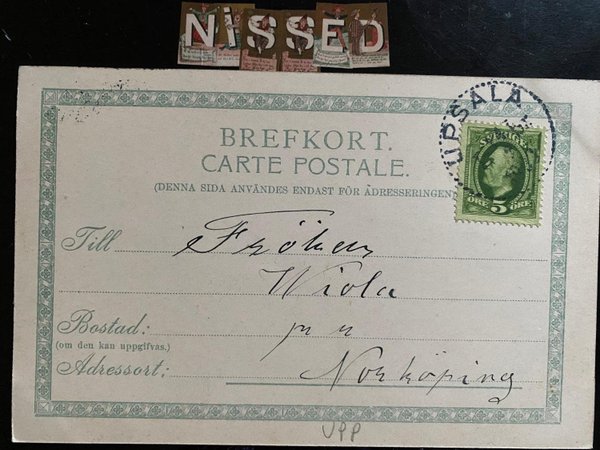 NiSSED
UPSALA
BREFKORT.
CARTE POSTALE.
(DENNA SIDA ANVÄNDES ENDAST FÖR ADRESSERINGEN
SVERIGE
ÖRE 5 ÖRE
Till Fröken
Wiola
Bostad:
(om den kan uppgifvas.)
Adressort: Norköping
UPP